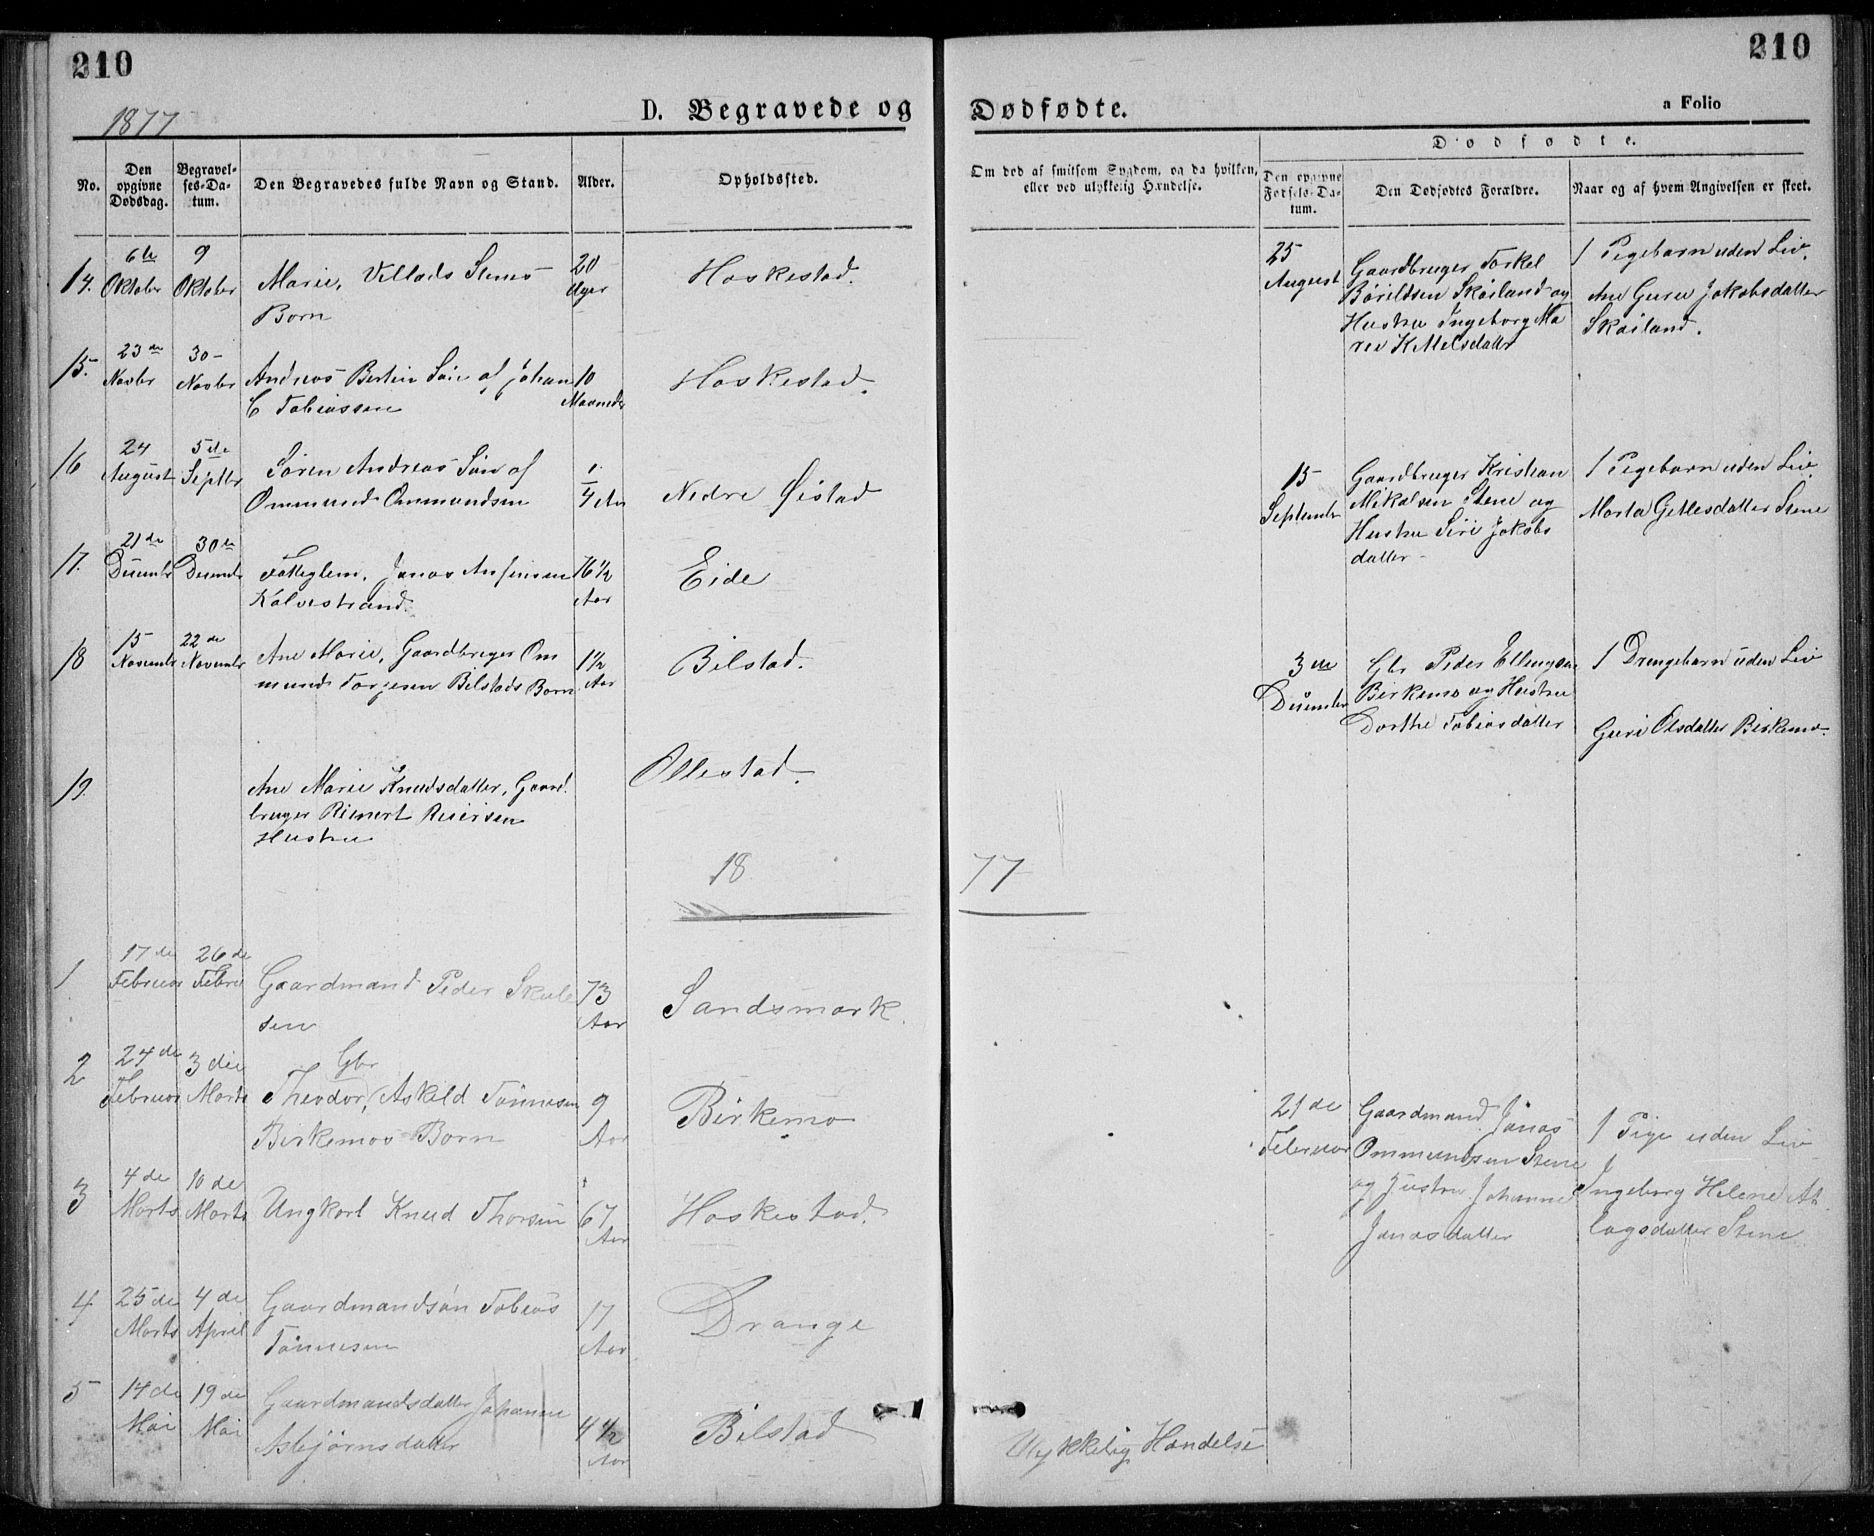 210
210
1877
D. Begravede og Dødfødte.
a Folio
Dødfødte.
No.
Den opgivne Dødsdag.
Begravelses-Datum.
Den Begravedes fulde Navn og Stand.
Alder.
Opholdssted.
Om død af smitsom Sygdom, og da hvilken,
eller ved ulykkelig Hændelse.
Den opgivne Fødsels-Datum.
Den Dødfødtes Forældre.
Naar og af hvem Angivelsen er skeet.
14.
6te
Oktober
9
Oktober
Marie, Villads Stenes
Barn
20
Uger
Haskestad.
25
August
Gaardbruger Torkel
Bårildsen Skåiland og
Hustru Ingeborg Ma
rie Ketilsdatter
1 Pigebarn uden Liv.
Ane Guru Jakobsdatter
Skåiland.
15.
23de
Novbr
30
Novbr
Andreas Bertin Søn af Johan
C Tobiassen
10
Maaneder
Haskestad.
16
24
August
5de
Septbr
Søren Andreas Søn af
Ommund Ommundsen
1/4 Aar
Nedre Øistad
15
September
Gaardbruger Kristian
Mikalsen Stene og
Hustru Siri Jakobs
datter
1 Pigebarn uden Liv
Marta Getlesdatter Stene
17.
21de
December
30te
December
Fattiglem, Janas Anfinsen
Kalvestrand.
76 1/2
Aar
Eide
18
15
November
22de
November
Ane Marie, Gaardbruger Om
mund Torjesen Bilstads Barn
1 1/2
Aar
Bilstad.
3de
December
Gbr Peder Ellingsen
Birkemo og Hustru
Dorthe Tobiasdatter
1 Drengebarn uden Liv
Guri Olsdatter Birkemo.
19.
Ane Marie Knudsdatter, Gaard
bruger Reinert Reiersen
Hustru
Ollestad.
18 77
1
17de
Februar
26de
Febru
Gaardmand Peder Skule
sen
73
Aar
Sandsmark.
2
24de
Februar
3die
Marts
Gbr
Theodor, Askild Tønnesen
Birkemos Barn
9
Aar
Birkemo
21de
Februar
Gaardmand Jånas
Ommundsen Stene
og Hustru Johanne
Janasdatter
1 Pige uden Liv
Ingeborg Helene At
lagsdatter Stene
3
4de
Marts
10de
Marts
Ungkarl Knud Thorsen
67
Aar
Haskestad.
4
25de
Marts
4de
April
Gaardmandsøn Tobias
Tønnesen
17
Aar
Drange
5
14de
Mai
19de
Mai
Gaardmandsdatter Johanne
Asbjørnsdatter
4 1/2
Aar
Bilstad
Ulykkelig Hændelse